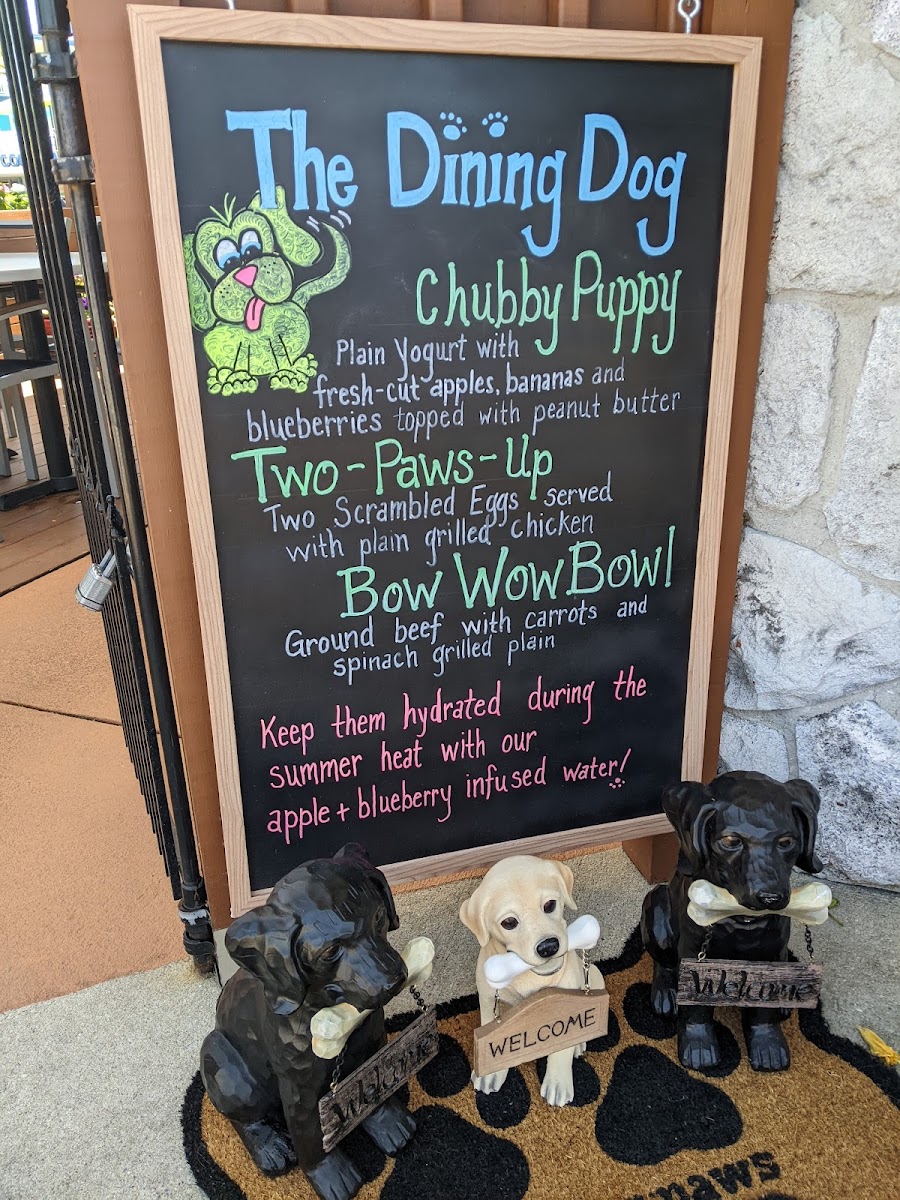 The Dining Dog
Chubby Puppy
Plain Yogurt with
fresh-cut apples, bananas and
blueberries topped with peanut butter
Two-Paws-Up
Two Scrambled Eggs served
with plain grilled chicken
Bow Wow Bowl
Ground beef with carrots and
spinach grilled plain
Keep them hydrated during the
summer heat with our
apple + blueberry infused water!
Welcome
WELCOME
Welcome
paws